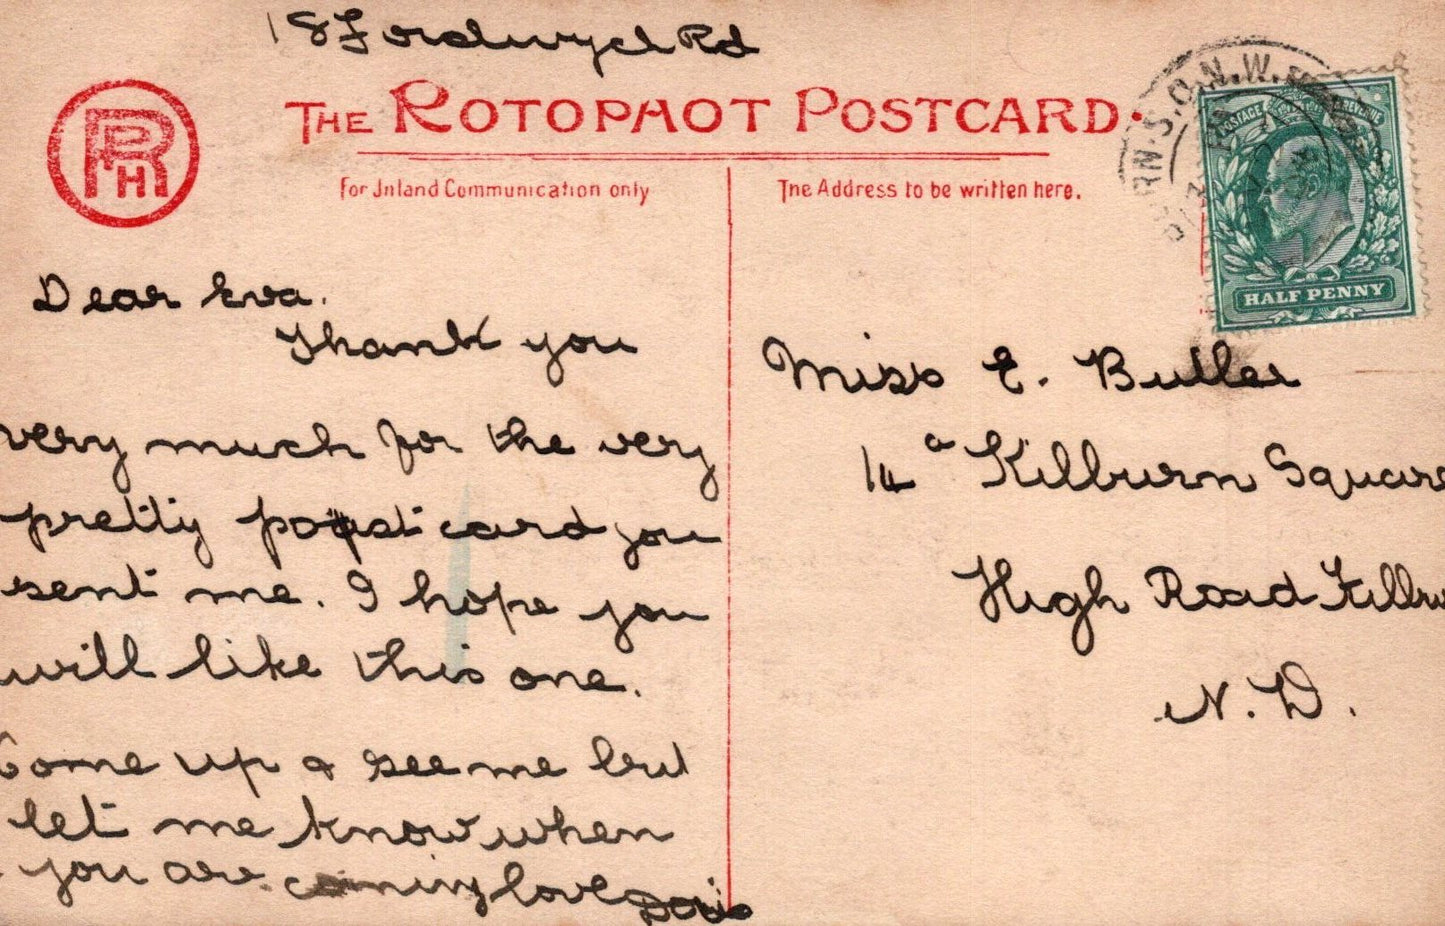 18 Fordwych Rd
THE ROTOPHOT POSTCARD.
RPH
For Inland Communication only
The Address to be written here.
N.S.O.N.W.
POSTAGE
HALF PENNY
Dear Eva.
Thank you
very much for the very
pretty post card you
sent me. I hope you
will like this one.
Come up & see me but
let me know when
you are coming love Doris
Miss E. Butler
14a Kilburn Square
High Road Kilbur
N.W.